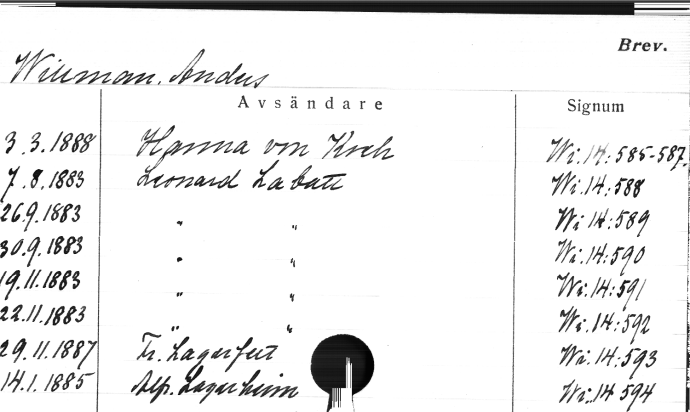 Brev.
Willman, Andus
Avsändare Signum
3.3.1888 Hanna von Koch Wi.14:585-587.
7.8.1883 Leonard Labatt Wi.14:588
26.9.1883 " " Wi 14:589
30.9.1883 " " Wi.14:590
19.11.1883 " " Wi.14:591
22.11.1883 " " Wi.14:592
29.11.1887 Fr. Lagerfelt Wi.14:593
14.1.1885 Alp. Lagerheim Wi.14 594